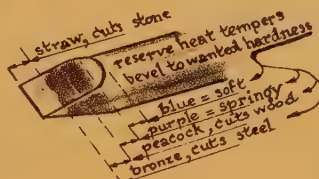 straw, cuts stone
reserve heat tempers
bevel to wanted hardness
blue = soft
purple = springy
peacock, cuts wood
bronze, cuts steel